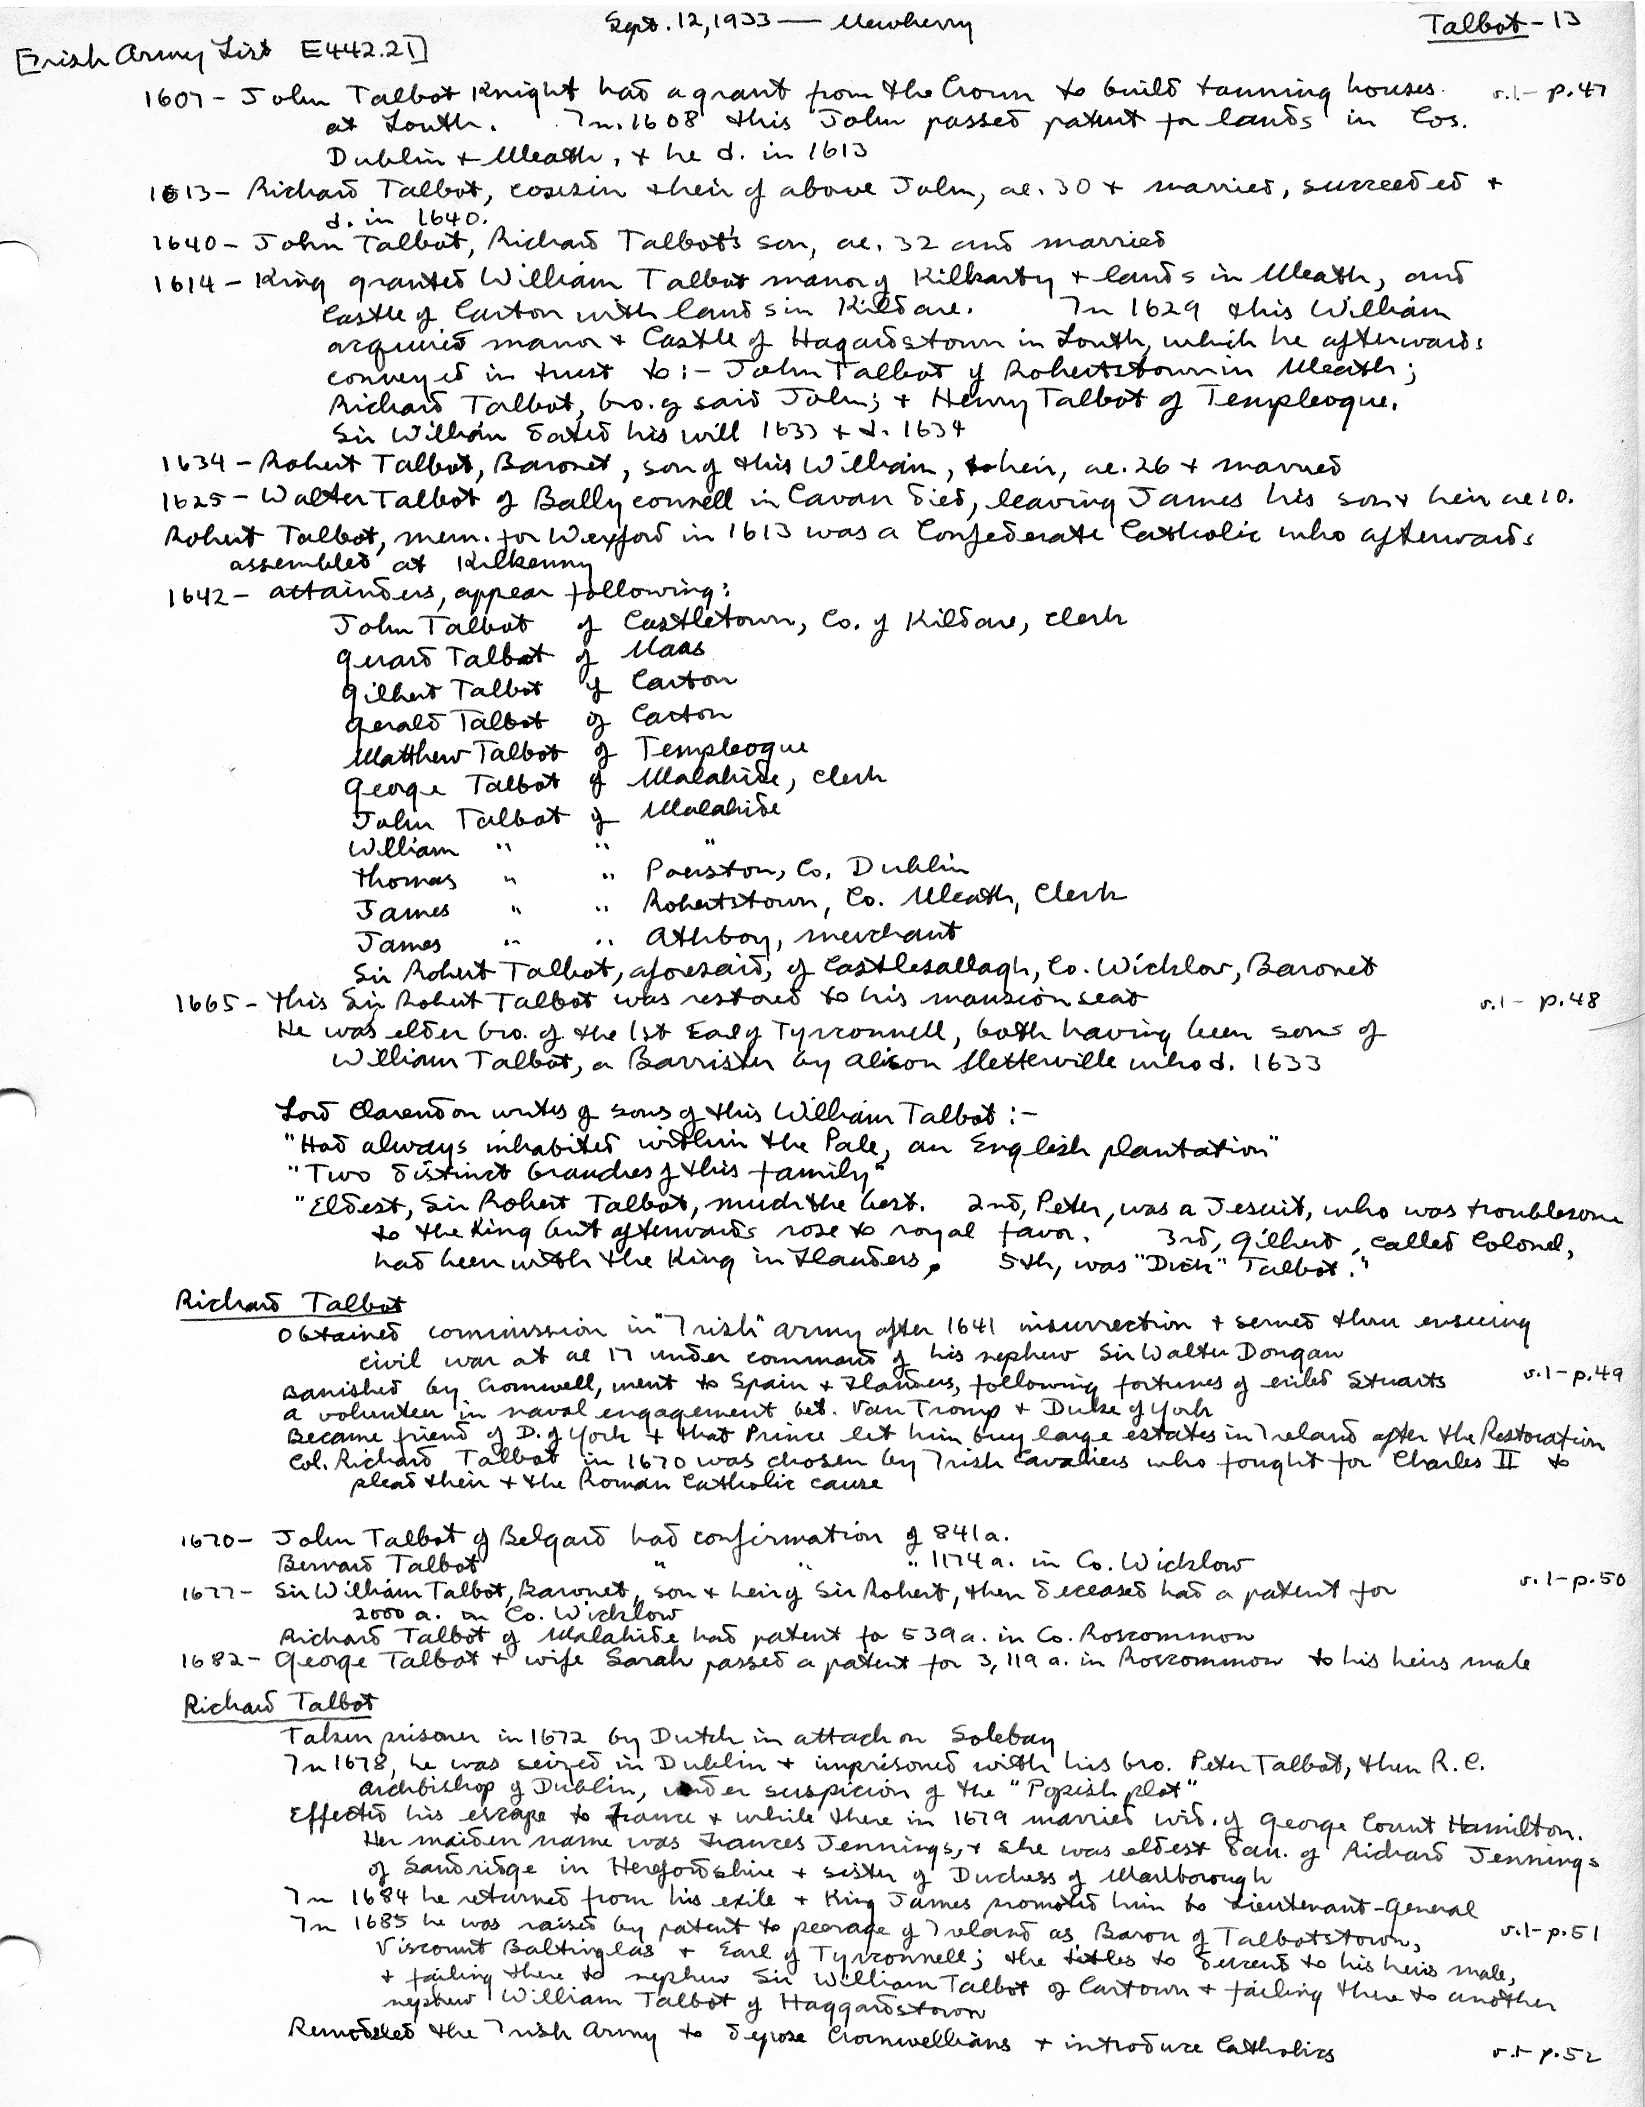 Sept. 12, 1933 — Newberry
Talbot - 13
[Irish Army List E442.21]
1607 - John Talbot Knight had a grant from the Crown to build tanning houses v.1 - p.47
at Louth. In 1608 this John passed patent for lands in Cos.
Dublin + Meath, + he d. in 1613
1613 - Richard Talbot, cousin + heir of above John, ae. 30 + married, succeeded +
d. in 1640.
1640 - John Talbot, Richard Talbot's son, ae. 32 and married
1614 - King granted William Talbot manor of Kilkarty + lands in Meath, and
Castle of Carton with lands in Kildare. In 1629 this William
acquired manor + Castle of Hagardstown in Louth, which he afterwards
conveyed in trust to :- John Talbot of Robertstown in Meath;
Richard Talbot, bro. of said John; + Henry Talbot of Templeogue.
Sir William dated his will 1633 + d. 1634
1634 - Robert Talbot, Baronet, son of this William, + heir, ae. 26 + married
1625 - Walter Talbot of Ballyconnell in Cavan died, leaving James his son + heir ae 10.
Robert Talbot, mem. for Wexford in 1613 was a Confederate Catholic who afterwards
assembled at Kilkenny
1642 - attainders, appear following:
John Talbot of Castletown, Co. of Kildare, clerk
Gerard Talbot of Naas
Gilbert Talbot of Carton
Gerald Talbot of Carton
Matthew Talbot of Templeogue
George Talbot of Malahide, clerk
John Talbot of Malahide
William " " "
Thomas " " Poerston, Co. Dublin
James " " Robertstown, Co. Meath, Clerk
James " " Athboy, merchant
Sir Robert Talbot, aforesaid, of Castlesallagh, Co. Wicklow, Baronet
1665 - this Sir Robert Talbot was restored to his mansion seat v.1 - p.48
He was elder bro. of the 1st Earl of Tyrconnell, both having been sons of
William Talbot, a Barrister by Alison Netterville who d. 1633
Lord Clarendon writes of sons of this William Talbot :-
"Had always inhabited within the Pale, an English plantation"
"Two distinct branches of this family"
"Eldest, Sir Robert Talbot, much the best. 2nd, Peter, was a Jesuit, who was troublesome
to the King but afterwards rose to royal favor. 3rd, Gilbert, called Colonel,
had been with the King in Flanders, 5th, was "Dick" Talbot."
Richard Talbot
Obtained commission in "Irish" army after 1641 insurrection + served thru ensuing
civil war at ae 17 under command of his nephew Sir Walter Dongan
Banished by Cromwell, went to Spain + Flanders, following fortunes of exiled Stuarts v.1 - p.49
a volunteer in naval engagement bet. Van Tromp + Duke of York
Became friend of D. of York + that Prince let him buy large estates in Ireland after the Restoration
Col. Richard Talbot in 1670 was chosen by Irish Cavaliers who fought for Charles II to
plead their + the Roman Catholic cause
1670 - John Talbot of Belgard had confirmation of 841 a.
Bernard Talbot " " " 1174 a. in Co. Wicklow
1677 - Sir William Talbot, Baronet, son + heir of Sir Robert, then deceased had a patent for v.1 - p.50
2000 a. in Co. Wicklow
Richard Talbot of Malahide had patent for 539 a. in Co. Roscommon
1682 - George Talbot + wife Sarah passed a patent for 3,119 a. in Roscommon to his heirs male
Richard Talbot
Taken prisoner in 1672 by Dutch in attack on Solebay
In 1678, he was seized in Dublin + imprisoned with his bro. Peter Talbot, then R.C.
Archbishop of Dublin, under suspicion of the "Popish plot"
Effected his escape to France + while there in 1679 married wid. of George Count Hamilton.
Her maiden name was Frances Jennings, + she was eldest dau. of Richard Jennings
of Sandridge in Herefordshire + sister of Duchess of Marlborough
In 1684 he returned from his exile + King James promoted him to Lieutenant-General
In 1685 he was raised by patent to peerage of Ireland as Baron of Talbotstown, v.1 - p.51
Viscount Baltinglas + Earl of Tyrconnell; the titles to descend to his heirs male,
+ failing there to nephew Sir William Talbot of Cartown + failing there to another
nephew William Talbot of Haggardstown
Remodeled the Irish Army to depose Cromwellians + introduce Catholics v.1 - p.52